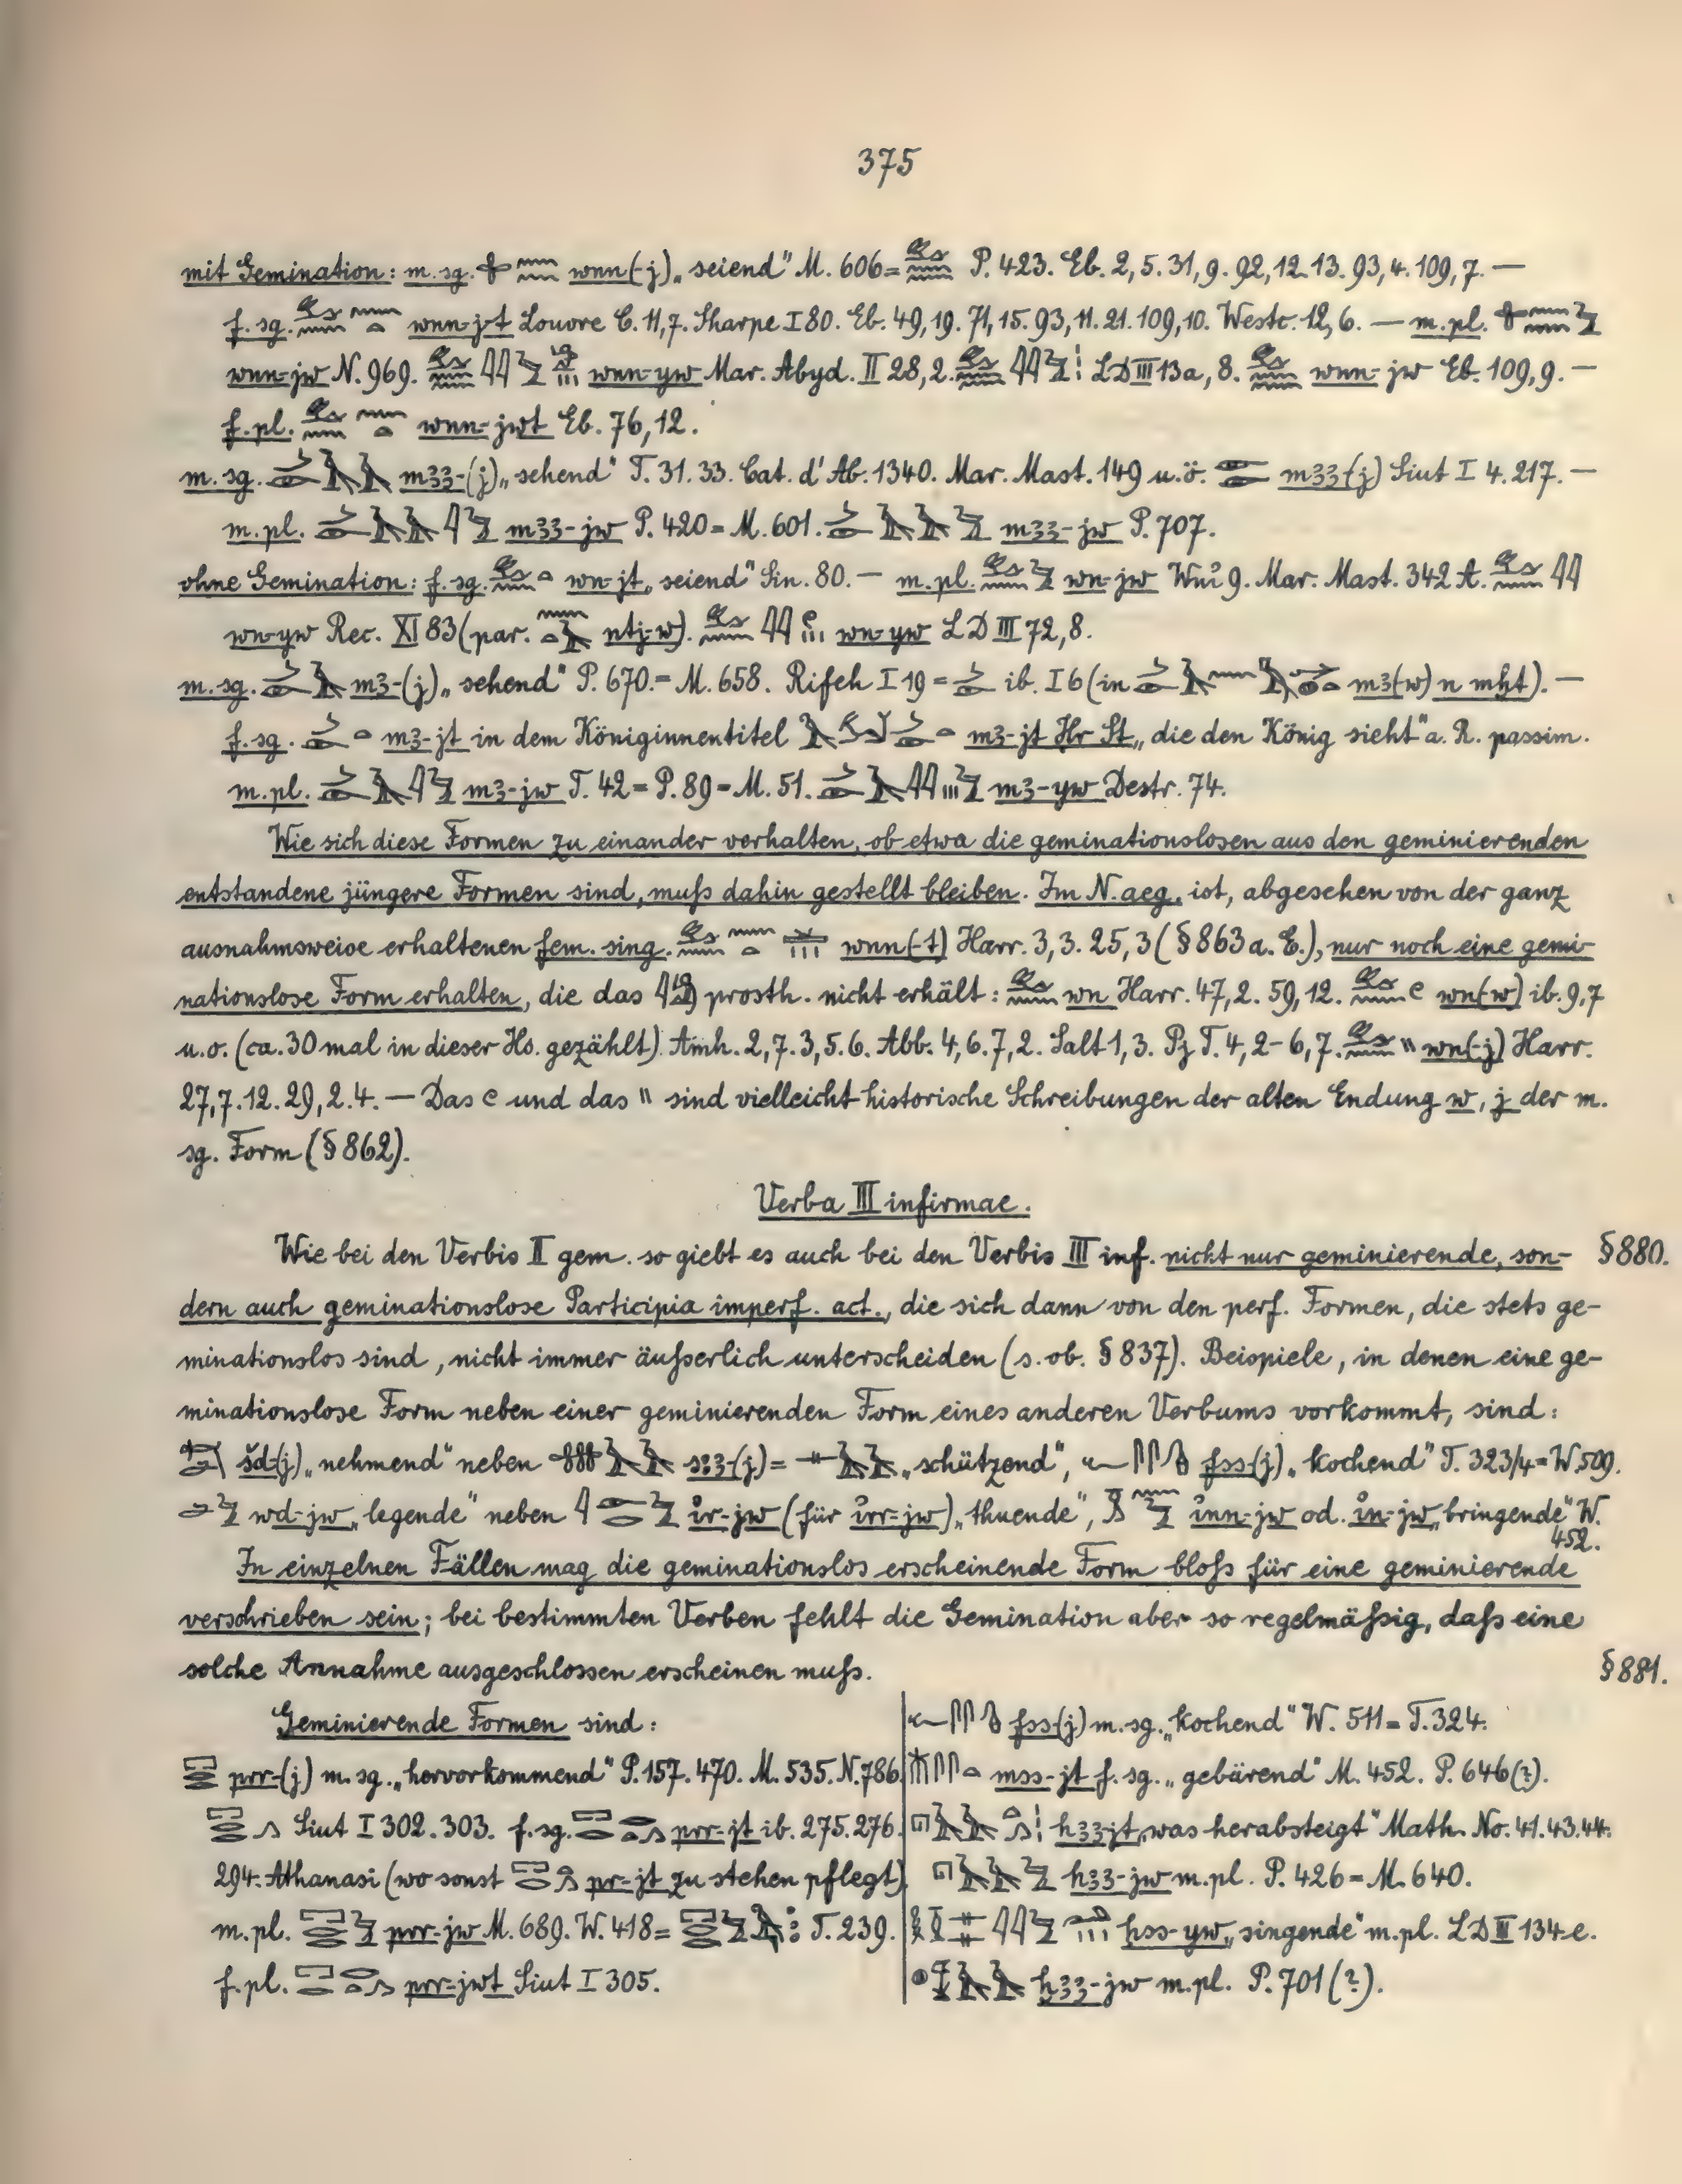 375
mit Gemination: m. sg. wnn(-j) „seiend“ M. 606 = P. 423. Eb. 2,5. 31,9. 92,12.13. 93,4. 109,7. —
f. sg. wnn-jt Louvre C. 11,7. Sharpe I 80. Eb. 49,19. 71,15. 93,11. 21. 109,10. Westc. 12,6. — m. pl.
wnn-jw N. 969. wnn-yw Mar. Abyd. II 28,2. LD III 13a, 8. wnn-jw Eb. 109,9. —
f. pl. wnn-jwt Eb. 76,12.
m. sg. m33-(j) „sehend“ T. 31. 33. Cat. d'Ab. 1340. Mar. Mast. 149 u. ö. m33-(j) Siut I 4. 217. —
m. pl. m33-jw P. 420 = M. 601. m33-jw P. 707.
ohne Gemination: f. sg. wn-jt „seiend“ Sin. 80. — m. pl. wn-jw Wni 9. Mar. Mast. 342 A.
wn-yw Rec. XI 83 (par. ntj-w). wn-yw LD III 72,8.
m. sg. m3-(j) „sehend“ P. 670. = M. 658. Rifeh I 19 = ib. I 6 (in m3(w) n mḥt). —
f. sg. m3-jt in dem Königinnentitel m3-jt Ḥr St „die den König sieht“ a. R. passim.
m. pl. m3-jw T. 42 = P. 89 = M. 51. m3-yw Destr. 74.
Wie sich diese Formen zu einander verhalten, ob etwa die geminationslosen aus den geminierenden
entstandene jüngere Formen sind, muß dahin gestellt bleiben. Im N. aeg. ist, abgesehen von der ganz
ausnahmsweise erhaltenen fem. sing. wnn(-t) Harr. 3,3. 25,3 (§ 863 a. E.), nur noch eine gemi-
nationslose Form erhalten, die das prosth. nicht erhält: wn Harr. 47,2. 59,12. wn(-w) ib. 9,7
u. o. (ca. 30 mal in dieser Hs. gezählt). Amh. 2,7. 3,5. 6. Abb. 4,6. 7,2. Salt 1,3. Pj T. 4,2-6,7. wn(-j) Harr.
27,7. 12. 29,2. 4. — Das und das \\ sind vielleicht historische Schreibungen der alten Endung w, j der m.
sg. Form (§ 862).
Verba III infirmae.
Wie bei den Verbis II gem. so giebt es auch bei den Verbis III inf. nicht nur geminierende, son- § 880.
dern auch geminationslose Participia imperf. act., die sich dann von den perf. Formen, die stets ge-
minationslos sind, nicht immer äußerlich unterscheiden (s. ob. § 837). Beispiele, in denen eine ge-
minationslose Form neben einer geminierenden Form eines anderen Verbums vorkommt, sind:
šd-(j) „nehmend“ neben (j) = „schützend“, fss-(j) „kochend“ T. 323/4 = W. 509.
wd-jw „legende“ neben ỉr-jw (für ỉrr-jw) „thuende“, ỉnn-jw od. ỉn-jw „bringende“ W.
452.
In einzelnen Fällen mag die geminationslos erscheinende Form bloß für eine geminierende
verschrieben sein; bei bestimmten Verben fehlt die Gemination aber so regelmäßig, daß eine
solche Annahme ausgeschlossen erscheinen muß.
§ 881.
Geminierende Formen sind:
prr-(j) m. sg. „hervorkommend“ P. 157. 470. M. 535. N. 786.
Siut I 302. 303. f. sg. prr-jt ib. 275. 276.
294. Athanasi (wo sonst pr-jt zu stehen pflegt).
m. pl. prr-jw M. 689. W. 418 = T. 239.
f. pl. prr-jwt Siut I 305.
fss-(j) m. sg. „kochend“ W. 511 = T. 324.
mss-jt f. sg. „gebärend“ M. 452. P. 646 (?).
h33-jt „was herabsteigt“ Math. No. 41. 43. 44.
h33-jw m. pl. P. 426 = M. 640.
ḥss-yw „singende“ m. pl. LD III 134 e.
ḫ33-jw m. pl. P. 701 (?).